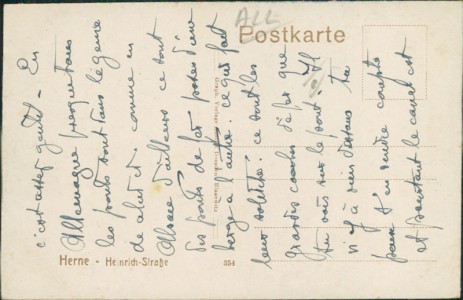 ALL
Postkarte
c'est assez gentil - En
Allemagne presque tous
les ponts sont dans le genre
de celui ci. comme en
Alsace d'ailleurs ce sont
des ponts de fer posés d'une
berge à l'autre: ce qui fait
leur solidité: ce sont les
grands d'fer que
tu vois sur le pont. Il
n'y a rien dessous tu
peux t'en rendre compte
et pourtant le canal est
Herne - Heinrich-Straße
354